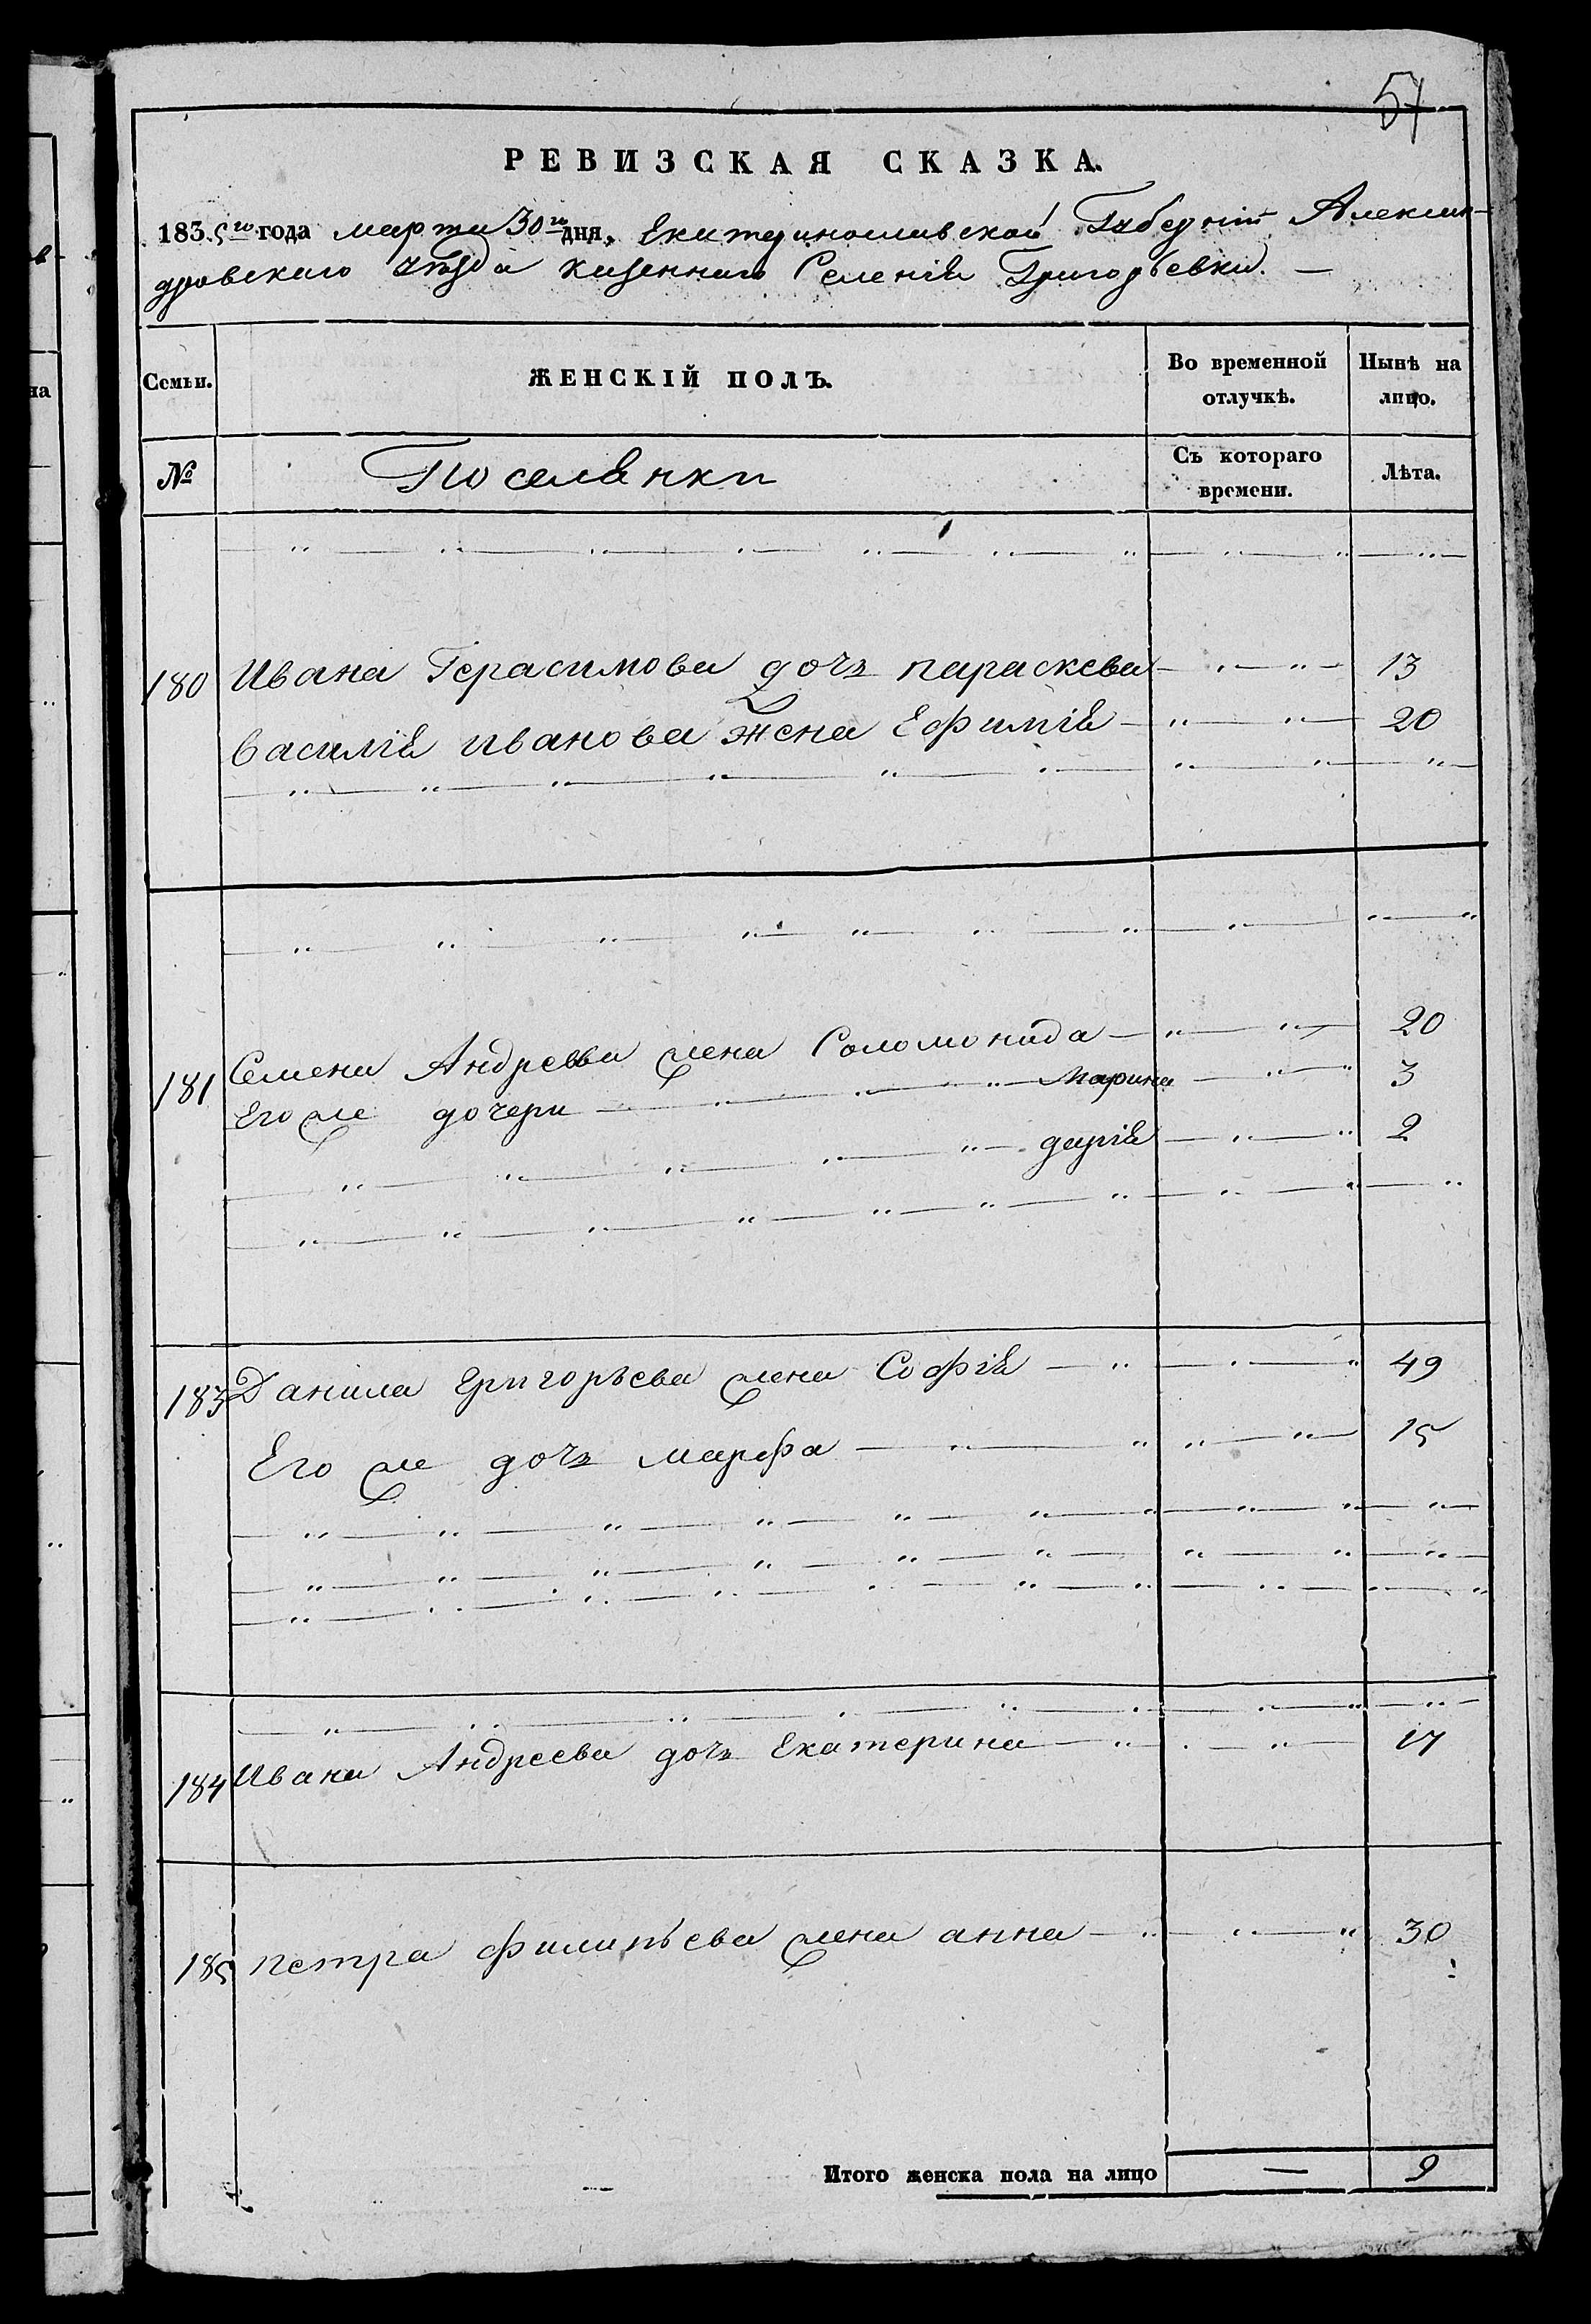 57
РЕВИЗСКАЯ СКАЗКА.
1835го года марта 30го дня, Екатеринославской Губерніи Алексан-
дровскаго уѣзда казеннаго Селенія Григорьевки. —
Семьи.
ЖЕНСКІЙ ПОЛЪ.
Во временной отлучкѣ.
Нынѣ на лицо.
№
Поселянки
Съ котораго времени.
Лѣта.
180 Ивана Герасимова дочь параскева 13
Василія иванова жена Ефимія 20
181 Семена Андреева жена Соломонида 20
Его же дочери марина 3
дарія 2
183 Данила Григорьева жена Софія 49
Его же дочь марфа 15
184 Ивана Андреева дочь Екатерина 17
185 петра филипьева жена анна 30
Итого женска пола на лицо — 9